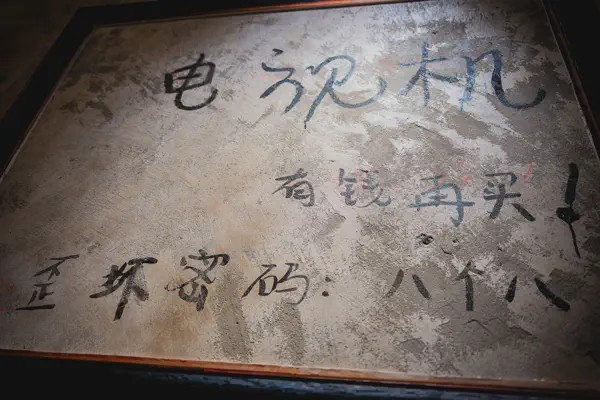 电视机
有钱再买!
歪坏密码:八个八